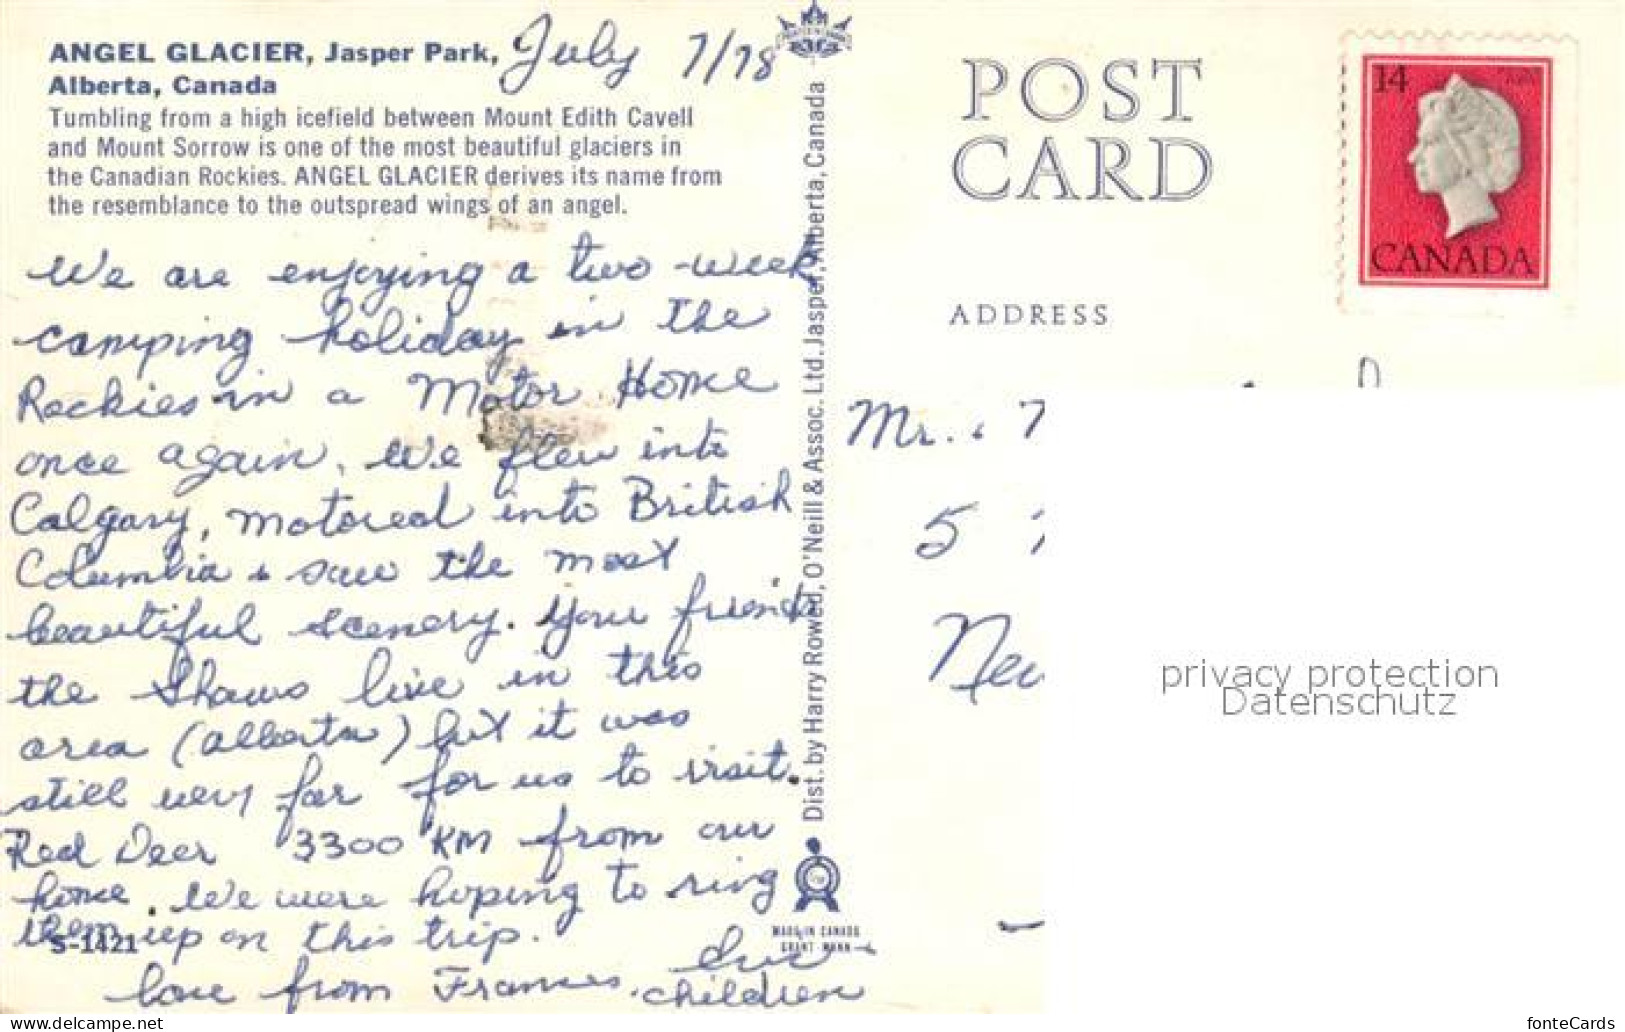 ANGEL GLACIER, Jasper Park,
Alberta, Canada
July 7/78
Tumbling from a high icefield between Mount Edith Cavell
and Mount Sorrow is one of the most beautiful glaciers in
the Canadian Rockies. ANGEL GLACIER derives its name from
the resemblance to the outspread wings of an angel.
We are enjoying a two week
camping holiday in the
Rockies in a Motor Home
once again. We flew into
Calgary, motored into British
Columbia & saw the most
beautiful scenery. Your friends
the Shaws live in this
area (Alberta) but it was
still very far for us to visit.
Red Deer 3300 KM from our
home. We were hoping to ring
them up on this trip.
love from Frances.
children
S-1421
Dist. by Harry Rowed, O'Neill & Assoc. Ltd. Jasper, Alberta, Canada
MADE IN CANADA
GRANT-MANN
POST
CARD
14
CANADA
ADDRESS
Mr.
5
New
privacy protection
Datenschutz
fonteCards